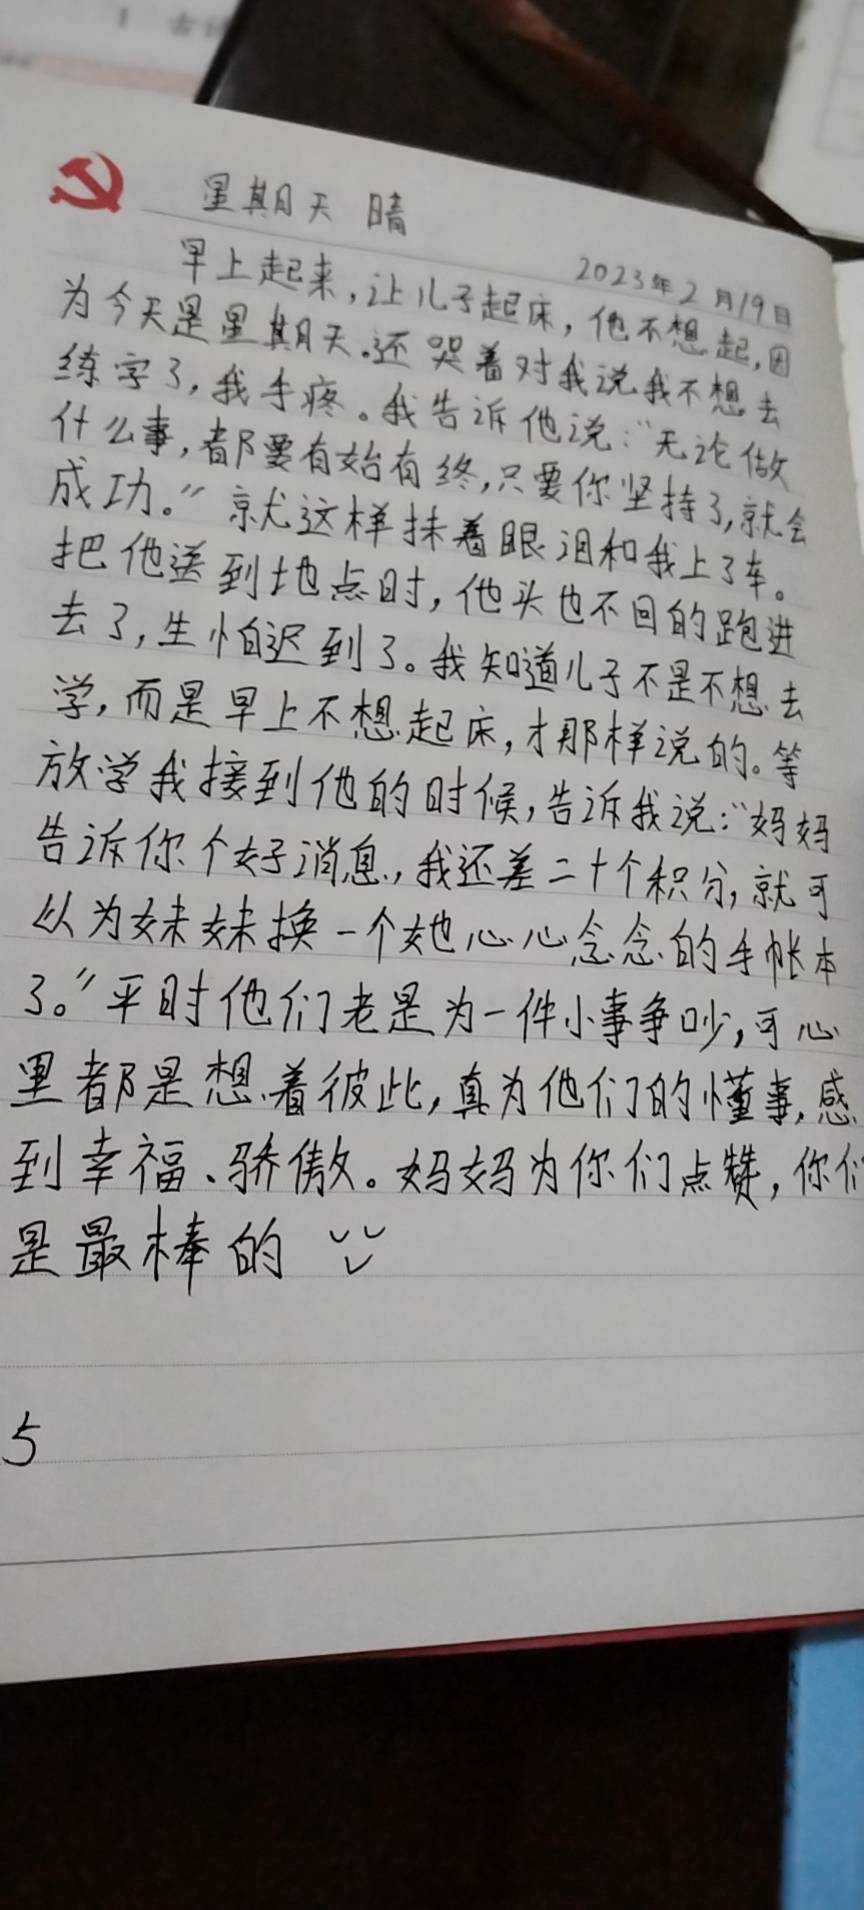 星期天 晴
2023年2月19日
早上起来，让儿子起床，他不想起，因
为今天是星期天。还哭着对我说我不想去
练字了，我手疼。我告诉他说：“无论做
什么事，都要有始有终，只要你坚持了，就会
成功。”就这样抹着眼泪和我上了车。
把他送到地点时，他头也不回的跑进
去了，生怕迟到了。我知道儿子不是不想去
学，而是早上不想起床，才那样说的。等
放学我接到他的时候，告诉我说：“妈妈
告诉你个好消息，我还差二十个积分，就可
以为妹妹换一个她心心念念的手帐本
了。”平时他们老是为一件小事争吵，可心
里都是想着彼此，真为他们的懂事，感
到幸福、骄傲。妈妈为你们点赞，你们
是最棒的
5